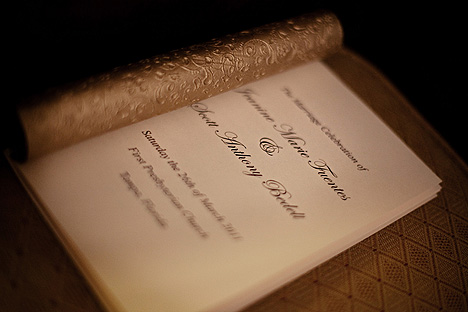 The Marriage Celebration of
Jeanine Marie Fuentes
&
Scott Anthony Bedell
Saturday the 26th of March 2011
First Presbyterian Church
Tampa, Florida